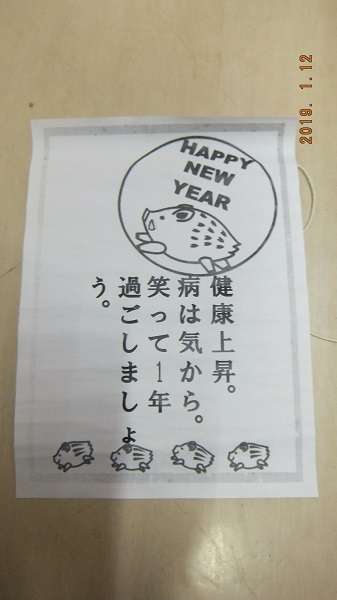 2019. 1. 12
HAPPY
NEW
YEAR
健康上昇。
病は気から。
笑って1年
過ごしましょ
う。